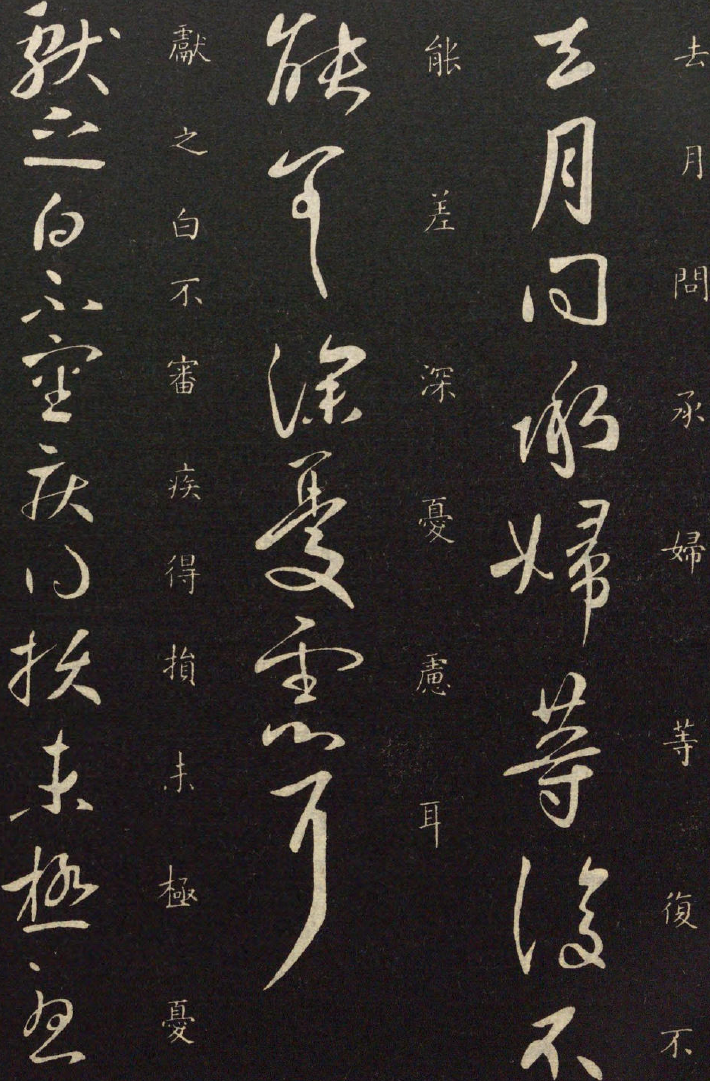 去月問承婦等復不
去月問承婦等復不
能差深憂慮耳
能差深憂慮耳
獻之白不審疾得損未極憂
獻之白不審疾得損未極憂